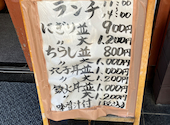 ランチ 11:00 14:00
にぎり並 900円
〃 大 1.200円
ちらし並 800円
〃 大 1.000円
穴子丼並 1.000円
〃 大
鉄火丼並 1.000円
〃 大 1.200円
味噌汁付